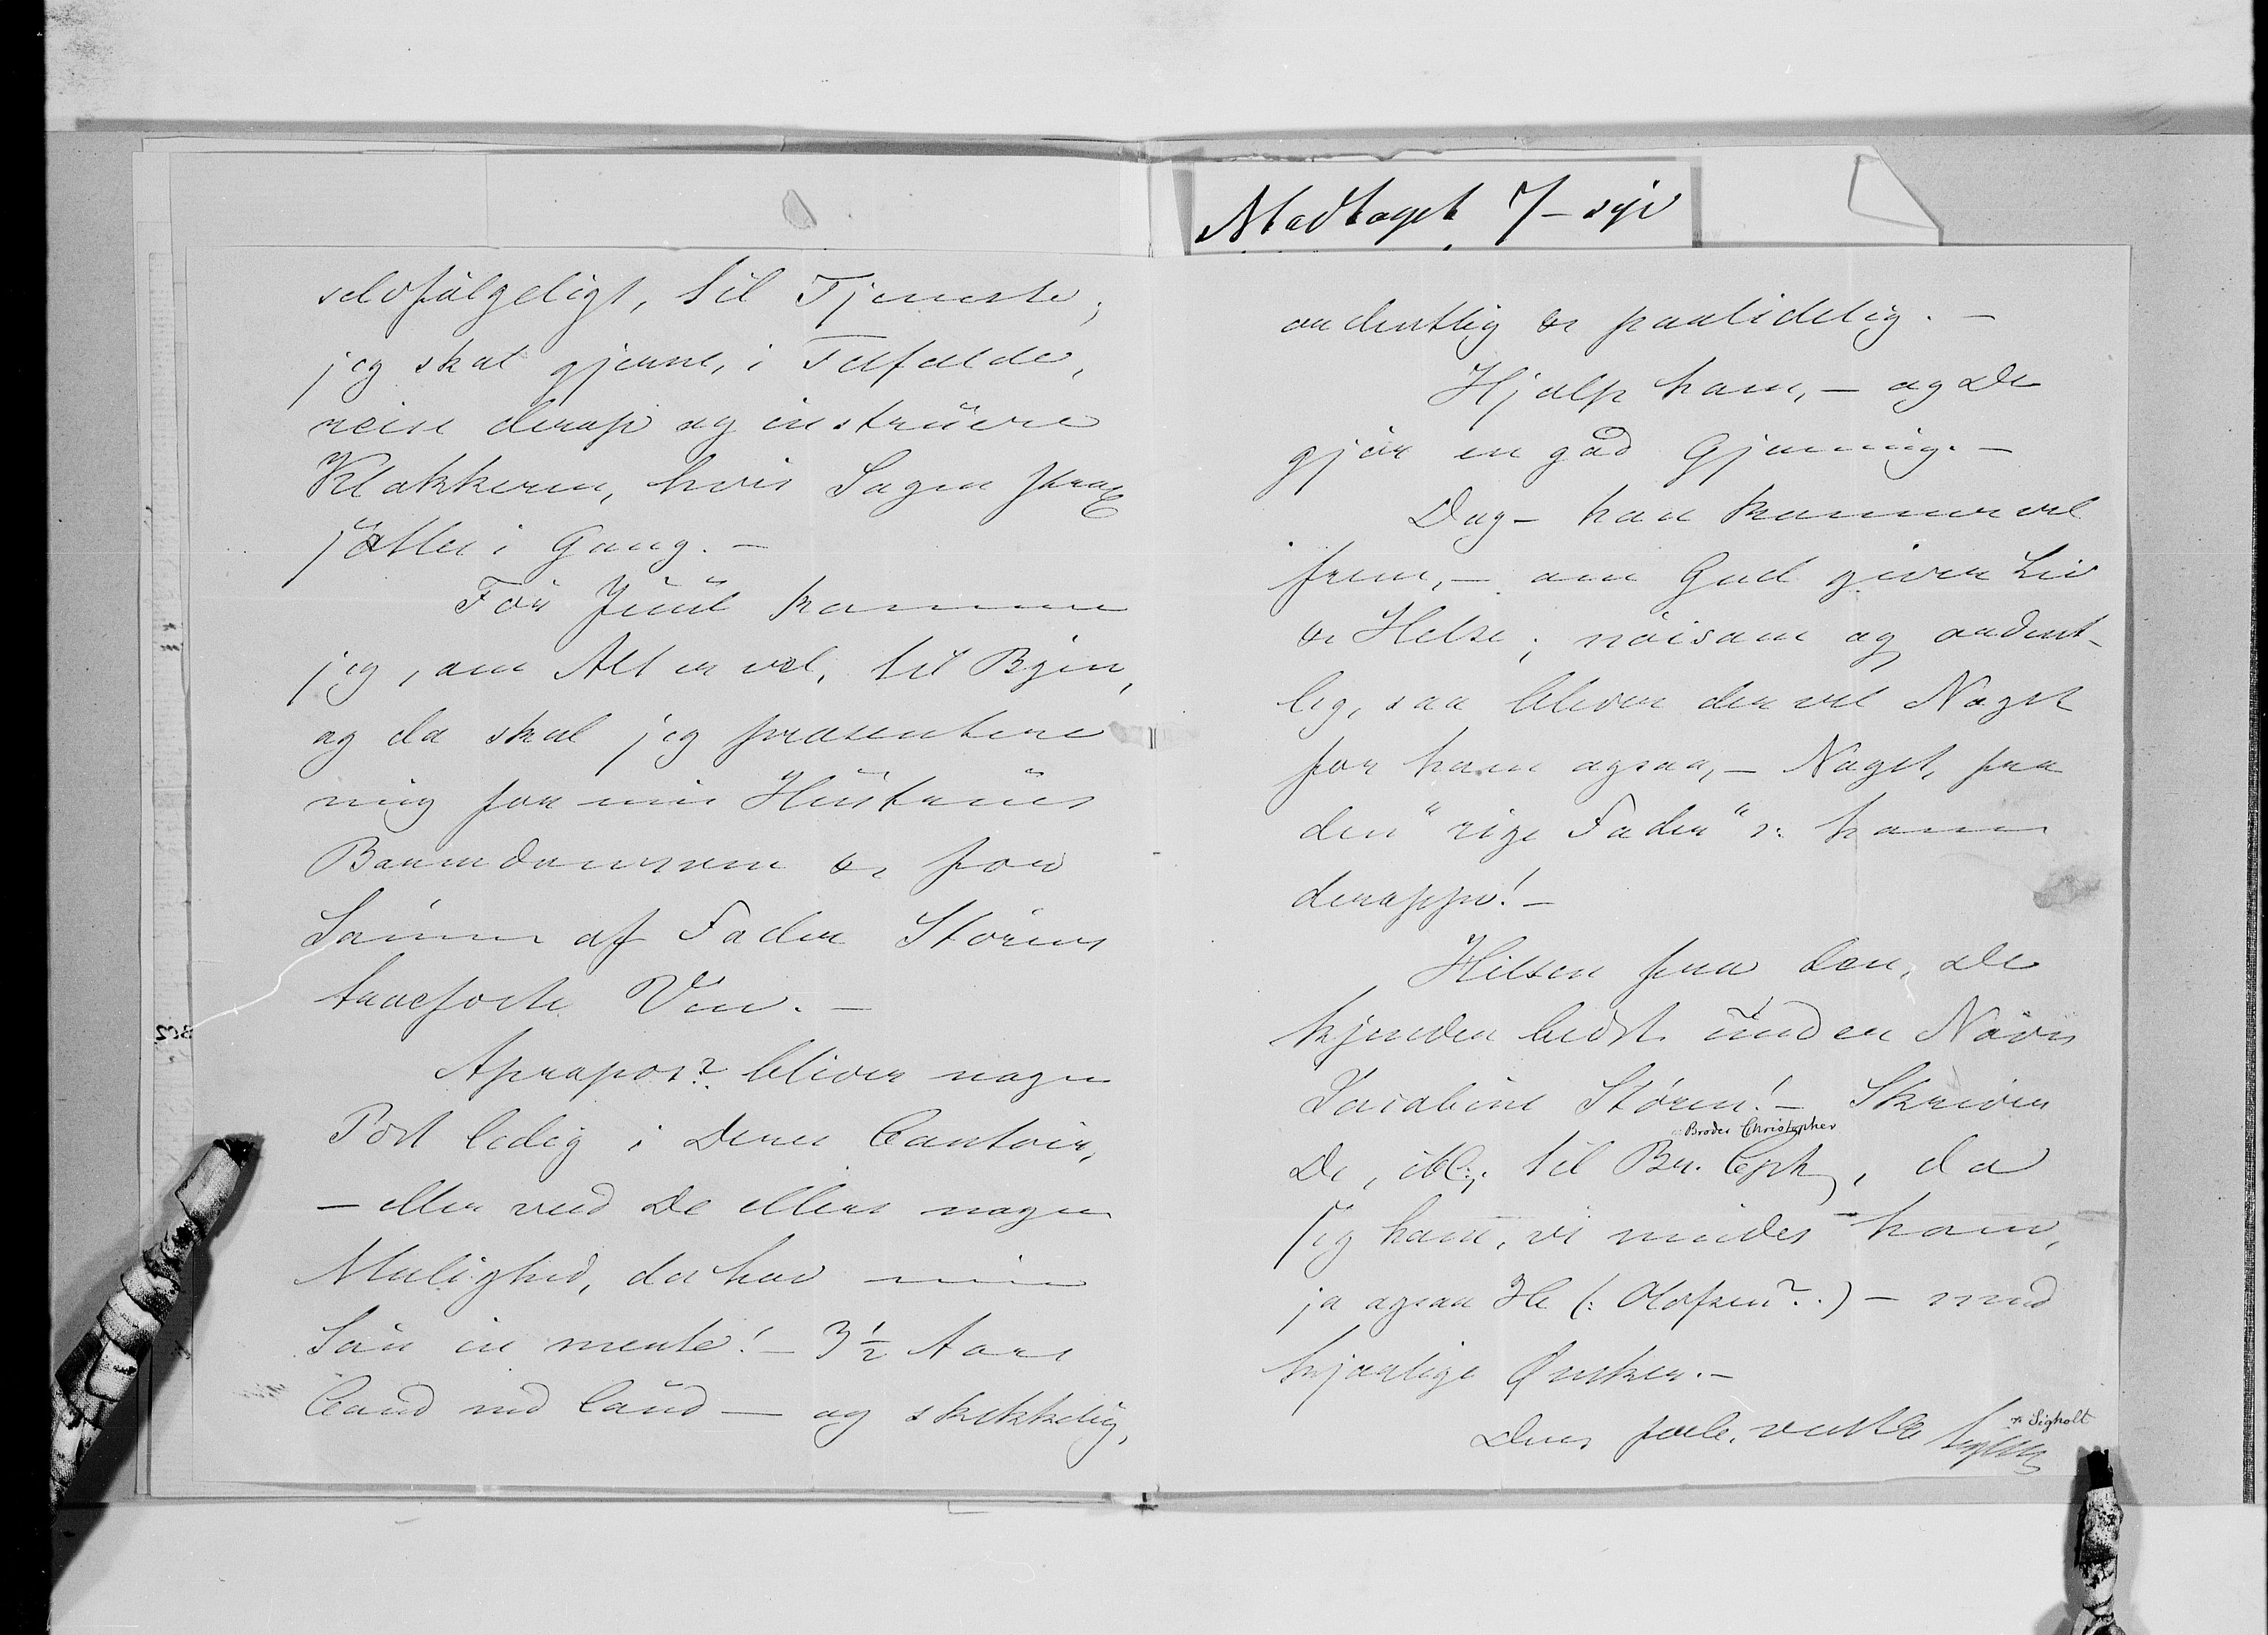 selvfølgeligt, til Tjeneste;
jeg skal gjerne, i Tilfælde,
reise derop og instruere
Klokkeren, hvis Sagen skal
sættes i Gang. –
Før Juul kommer
jeg, om Alt er vel, til Byen,
og da skal jeg præsentere
mig for min Hustrues
Barndomsven & for
Sønnen af Fader Størens
trofaste Ven. –
Apropos? bliver nogen
Post ledig i Deres Contoir,
– eller veed De ellers nogen
Mulighed, da hav min
Søn in mente! – 3½ Aars
Cand med laud – og skikkelig,
Modtaget 7 – syv
ordentlig & paalidelig. –
Hjælp ham, – og De
gjør en god Gjerning. –
Dog – han kommer vel
frem, – om Gud giver Liv
& Helse; nøisom og ordent-
lig, saa bliver der vel Noget
for ham ogsaa, – Noget, fra
den "rige Fader" ɔ: ham
deroppe! –
Hilsen fra den, De
kjender bedst under Navn
Jacobine Støren! – Skriver
Broder Christopher
De, til Br. Cph, da
sig ham, vi mindes ham,
ja ogsaa He (: Olofsen? :) – med
kjærlige Ønsker. –
Deres
ɔ: Sigholt